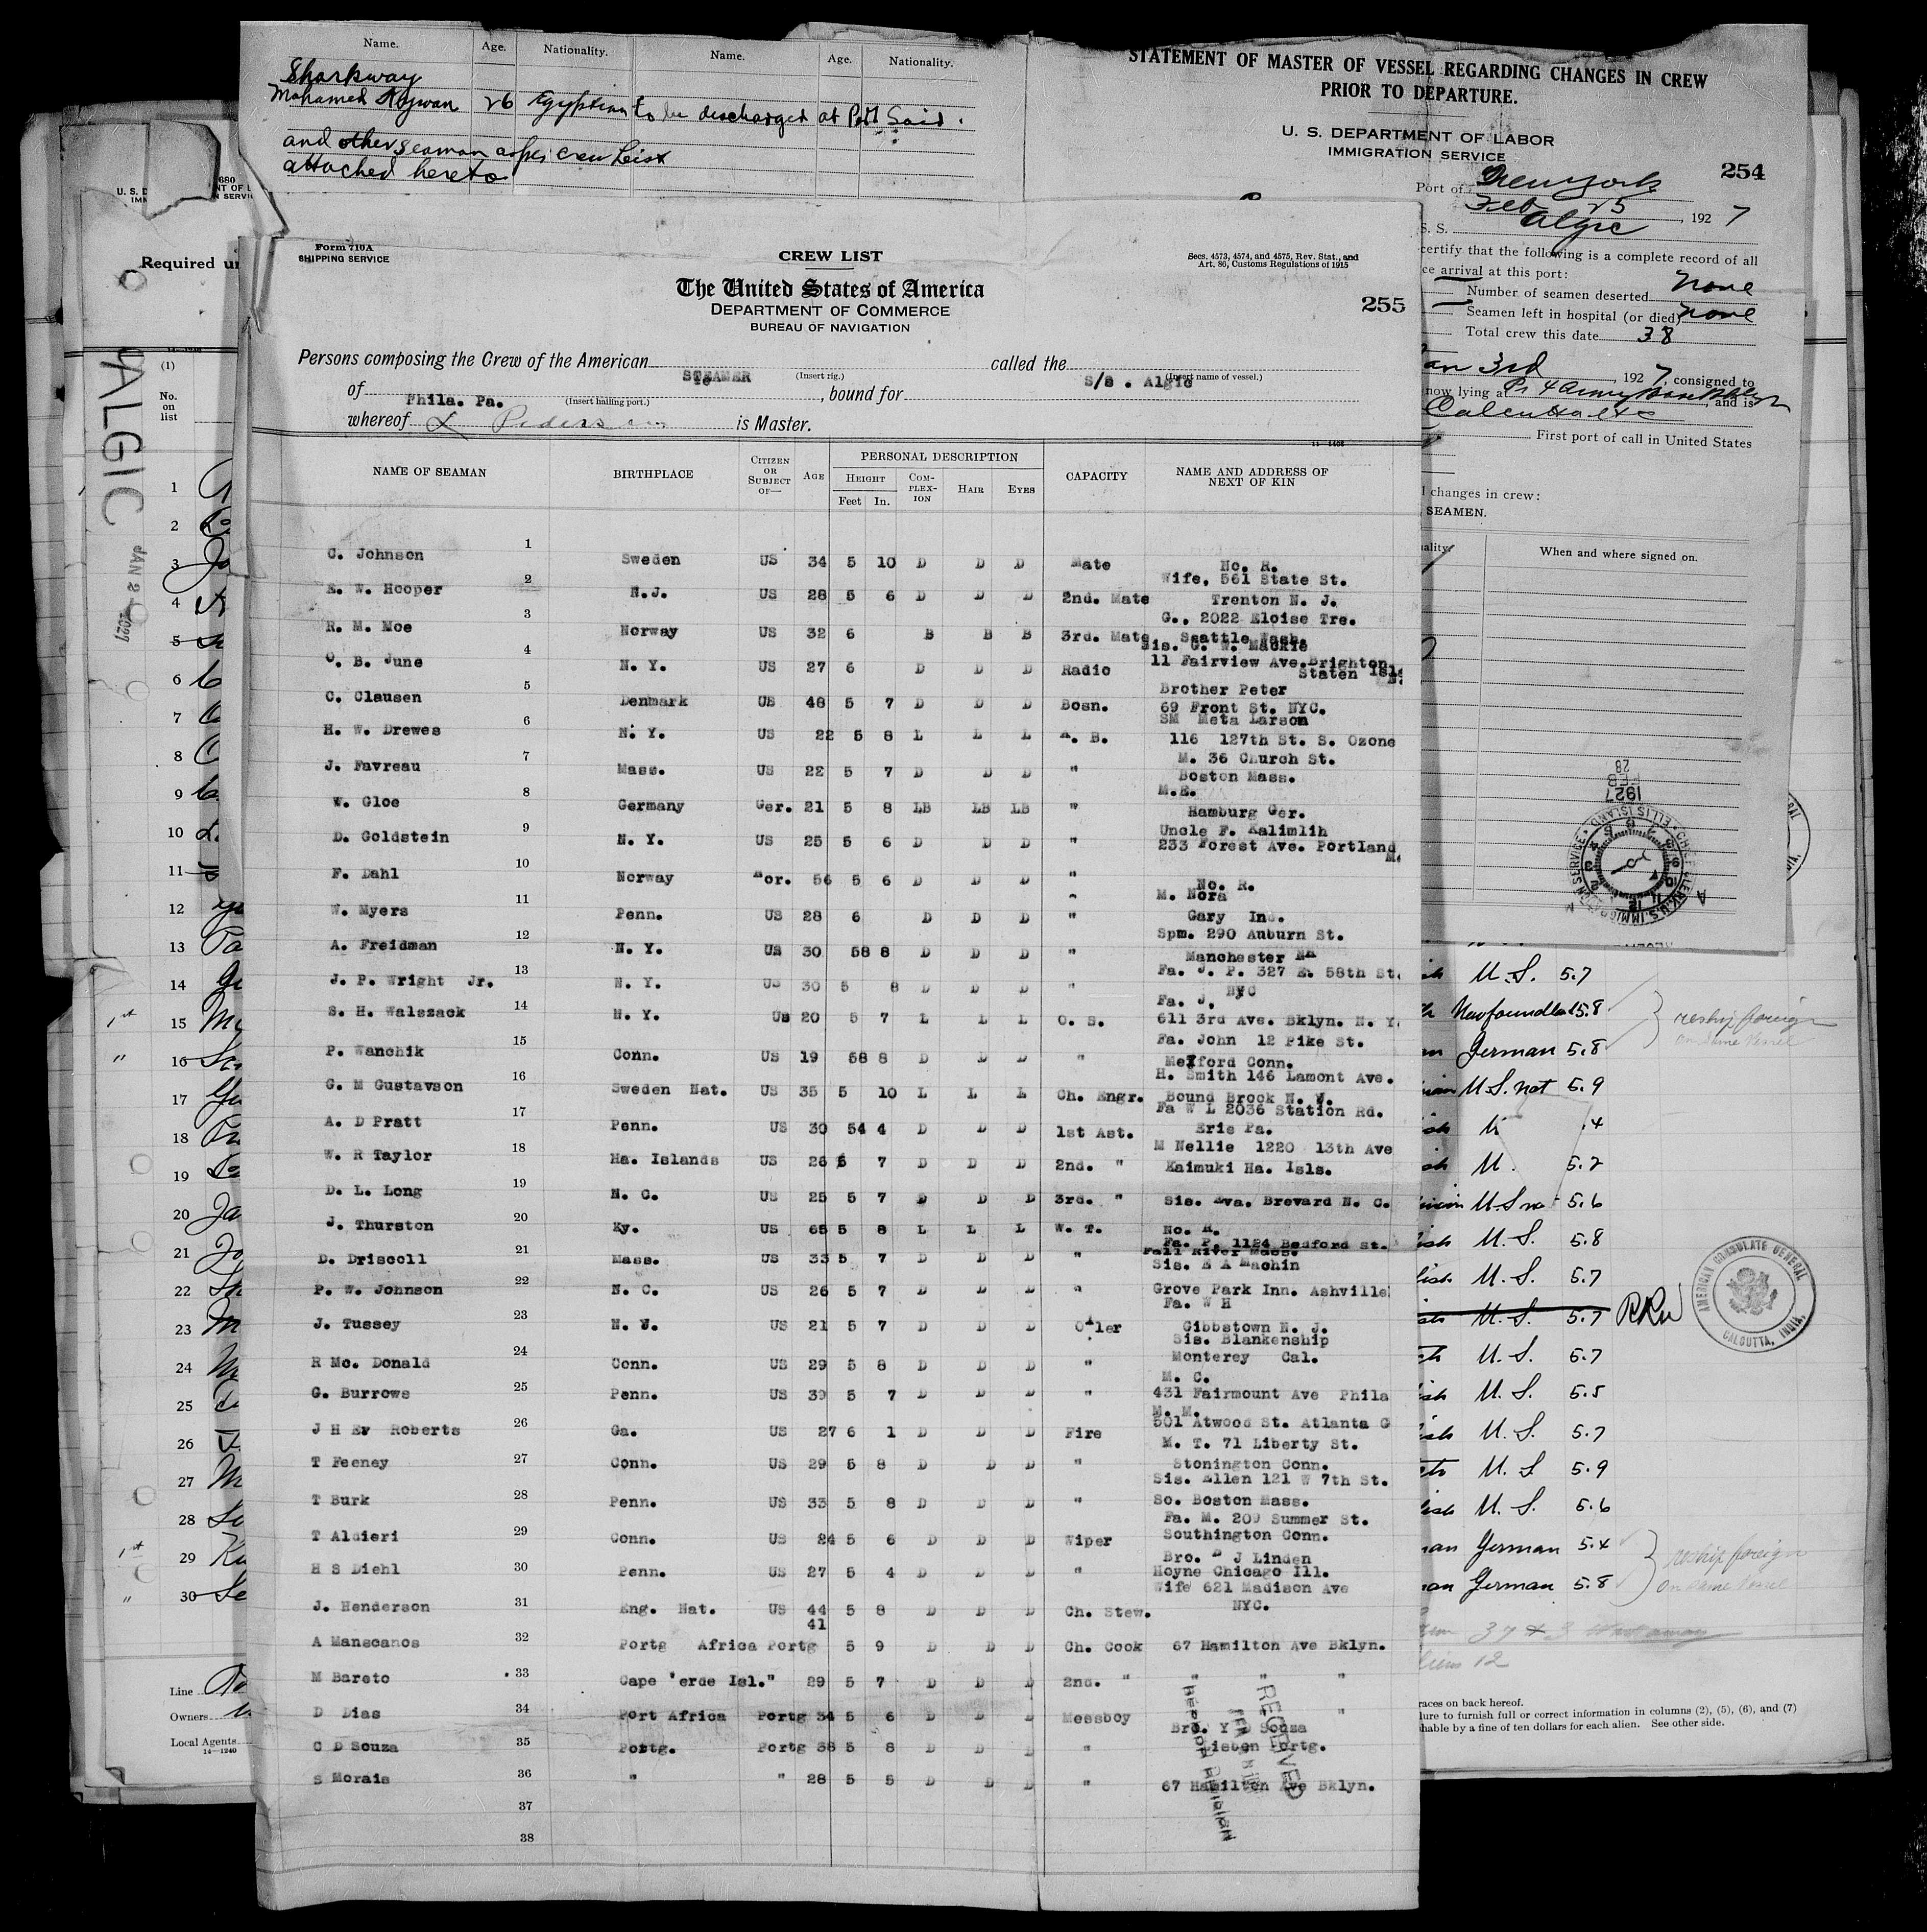 Name. Age. Nationality. Name. Age. Nationality.
Sharkway
Mohamed 26 Egyptian to be discharged at Port Said.
and other seaman as per crew List
attached hereto
STATEMENT OF MASTER OF VESSEL REGARDING CHANGES IN CREW
PRIOR TO DEPARTURE.
U. S. DEPARTMENT OF LABOR
IMMIGRATION SERVICE
254
Port of New York
Feb 25, 1927
S. S. Algic
certify that the following is a complete record of all
ce arrival at this port:
Number of seamen deserted none
Seamen left in hospital (or died) none
Total crew this date 38
an 3rd, 1927, consigned to
now lying at and is
Calcutta etc
First port of call in United States
changes in crew:
SEAMEN.
ality When and where signed on.
1927
FEB
28
Form 710A
SHIPPING SERVICE
CREW LIST
Secs. 4573, 4574, and 4575, Rev. Stat., and
Art. 86, Customs Regulations of 1915
The United States of America
DEPARTMENT OF COMMERCE
BUREAU OF NAVIGATION
255
Persons composing the Crew of the American STEAMER (Insert rig.) called the S/S . Algic (Insert name of vessel.)
of Phila. Pa. (Insert hailing port.), bound for
whereof L Pedersen is Master.
NAME OF SEAMAN BIRTHPLACE CITIZEN OR SUBJECT OF— AGE PERSONAL DESCRIPTION CAPACITY NAME AND ADDRESS OF NEXT OF KIN
HEIGHT COMPLEXION HAIR EYES
Feet In.
C. Johnson 1 Sweden US 34 5 10 D D D Mate No. R.
E. W. Hooper 2 N.J. US 28 5 6 D D D 2nd. Mate Wife, 561 State St. Trenton N. J.
R. M. Moe 3 Norway US 32 6 B B B 3rd. Mate G., 2022 Eloise Tre. Seattle Wash.
O. B. June 4 N. Y. US 27 6 D D D Radio Sis. G. W. Mackie 11 Fairview Ave. Brighton Staten Isl
C. Clausen 5 Denmark US 48 5 7 D D D Bosn. Brother Peter 69 Front St. NYC.
H. W. Drewes 6 N. Y. US 22 5 8 L L L A. B. SM Meta Larson 116 127th St. S. Ozone
J. Favreau 7 Mass. US 22 5 7 D D D " M. 36 Church St. Boston Mass.
W. Gloe 8 Germany Ger. 21 5 8 LB LB LB " M.E. Hamburg Ger.
D. Goldstein 9 N. Y. US 25 5 6 D D D " Uncle F. Kalimlih 233 Forest Ave. Portland
F. Dahl 10 Norway Nor. 56 5 6 D D D " No. R.
W. Myers 11 Penn. US 28 6 D D D " M. Nora Gary Ind.
A. Freidman 12 N. Y. US 30 58 8 D D D " Spm. 290 Auburn St. Manchester NH
J. P. Wright Jr. 13 N. Y. US 30 5 8 D D D " Fa. J. P. 327 E. 58th St. NYC
S. H. Walszack 14 N. Y. US 20 5 7 L L L O. S. Fa. J. 611 3rd Ave. Bklyn. N. Y.
P. Wanchik 15 Conn. US 19 58 8 D D D " Fa. John 12 Pike St. Mexford Conn.
G. M Gustavson 16 Sweden Nat. US 35 5 10 L L L Ch. Engr. H. Smith 146 Lamont Ave. Bound Brook N. J.
A. D Pratt 17 Penn. US 30 54 4 D D D 1st Ast. Fa W L 2036 Station Rd. Erie Pa.
W. R Taylor 18 Ha. Islands US 26 5 7 D D D 2nd. " M Nellie 1220 13th Ave Kaimuki Ha. Isls.
D. L. Long 19 N. C. US 25 5 7 D D D 3rd. " Sis. Eva. Brevard N. C.
J. Thurston 20 Ky. US 65 5 8 L L L W. T. No. R.
D. Driscoll 21 Mass. US 33 5 7 D D D " Fa. P. 1124 Bedford St. Fall River Mass.
P. W. Johnson 22 N. C. US 26 5 7 D D D " Sis. E A Machin Grove Park Inn. Ashville
J. Tussey 23 N. J. US 21 5 7 D D D Oiler Fa. W H Gibbstown N. J.
R Mc. Donald 24 Conn. US 29 5 8 D D D " Sis. Blankenship Monterey Cal.
G. Burrows 25 Penn. US 39 5 7 D D D " M. C. 431 Fairmount Ave Phila
J H Ev Roberts 26 Ga. US 27 6 1 D D D Fire M. M. 501 Atwood St. Atlanta G
T Feeney 27 Conn. US 29 5 8 D D D " M. T. 71 Liberty St. Stonington Conn.
T Burk 28 Penn. US 33 5 8 D D D " Sis. Ellen 121 W 7th St. So. Boston Mass.
T Aldieri 29 Conn. US 24 5 6 D D D Wiper Fa. M. 209 Summer St. Southington Conn.
H S Diehl 30 Penn. US 27 5 4 D D D " Bro. D J Linden Hoyne Chicago Ill.
J. Henderson 31 Eng. Nat. US 44 5 8 D D D Ch. Stew. Wife 621 Madison Ave NYC.
A Manscanos 32 Portg Africa Portg 41 5 9 D D D Ch. Cook 67 Hamilton Ave Bklyn.
M Bareto 33 Cape Verde Isl. " 29 5 7 D D D 2nd. " " " "
D Dias 34 Port Africa Portg 34 5 6 D D D Messboy "
C D Souza 35 Portg. Portg 38 5 8 D D D " Bro. Y D Souza Lisbon Portg.
S Morais 36 " " 28 5 5 D D D " 67 Hamilton Ave Bklyn.
37
38
RECEIVED
680
Required un
ALGIC
JAN 2 1927
(1)
No. on list
1
2
3
4
5
6
7
8
9
10
11
12
13
14
1st 15
" 16
17
18
19
20
21
22
23
24
25
26
27
28
1st 29
" 30
Line
Owners
Local Agents
14—1240
U. S. 5.7
Newfoundland 5.8
German 5.8
reship foreign
on same vessel
U.S. nat 5.9
.4
U. 5.2
U.S na 5.6
U. S. 5.8
U. S. 5.7
U. S. 5.7 RRW
U. S. 5.7
U. S. 5.5
U. S. 5.7
U. S 5.9
U. S. 5.6
German 5.4
German 5.8
reship foreign
on same vessel
AMERICAN CONSULATE GENERAL
CALCUTTA, INDIA.
races on back hereof.
lure to furnish full or correct information in columns (2), (5), (6), and (7)
hable by a fine of ten dollars for each alien. See other side.